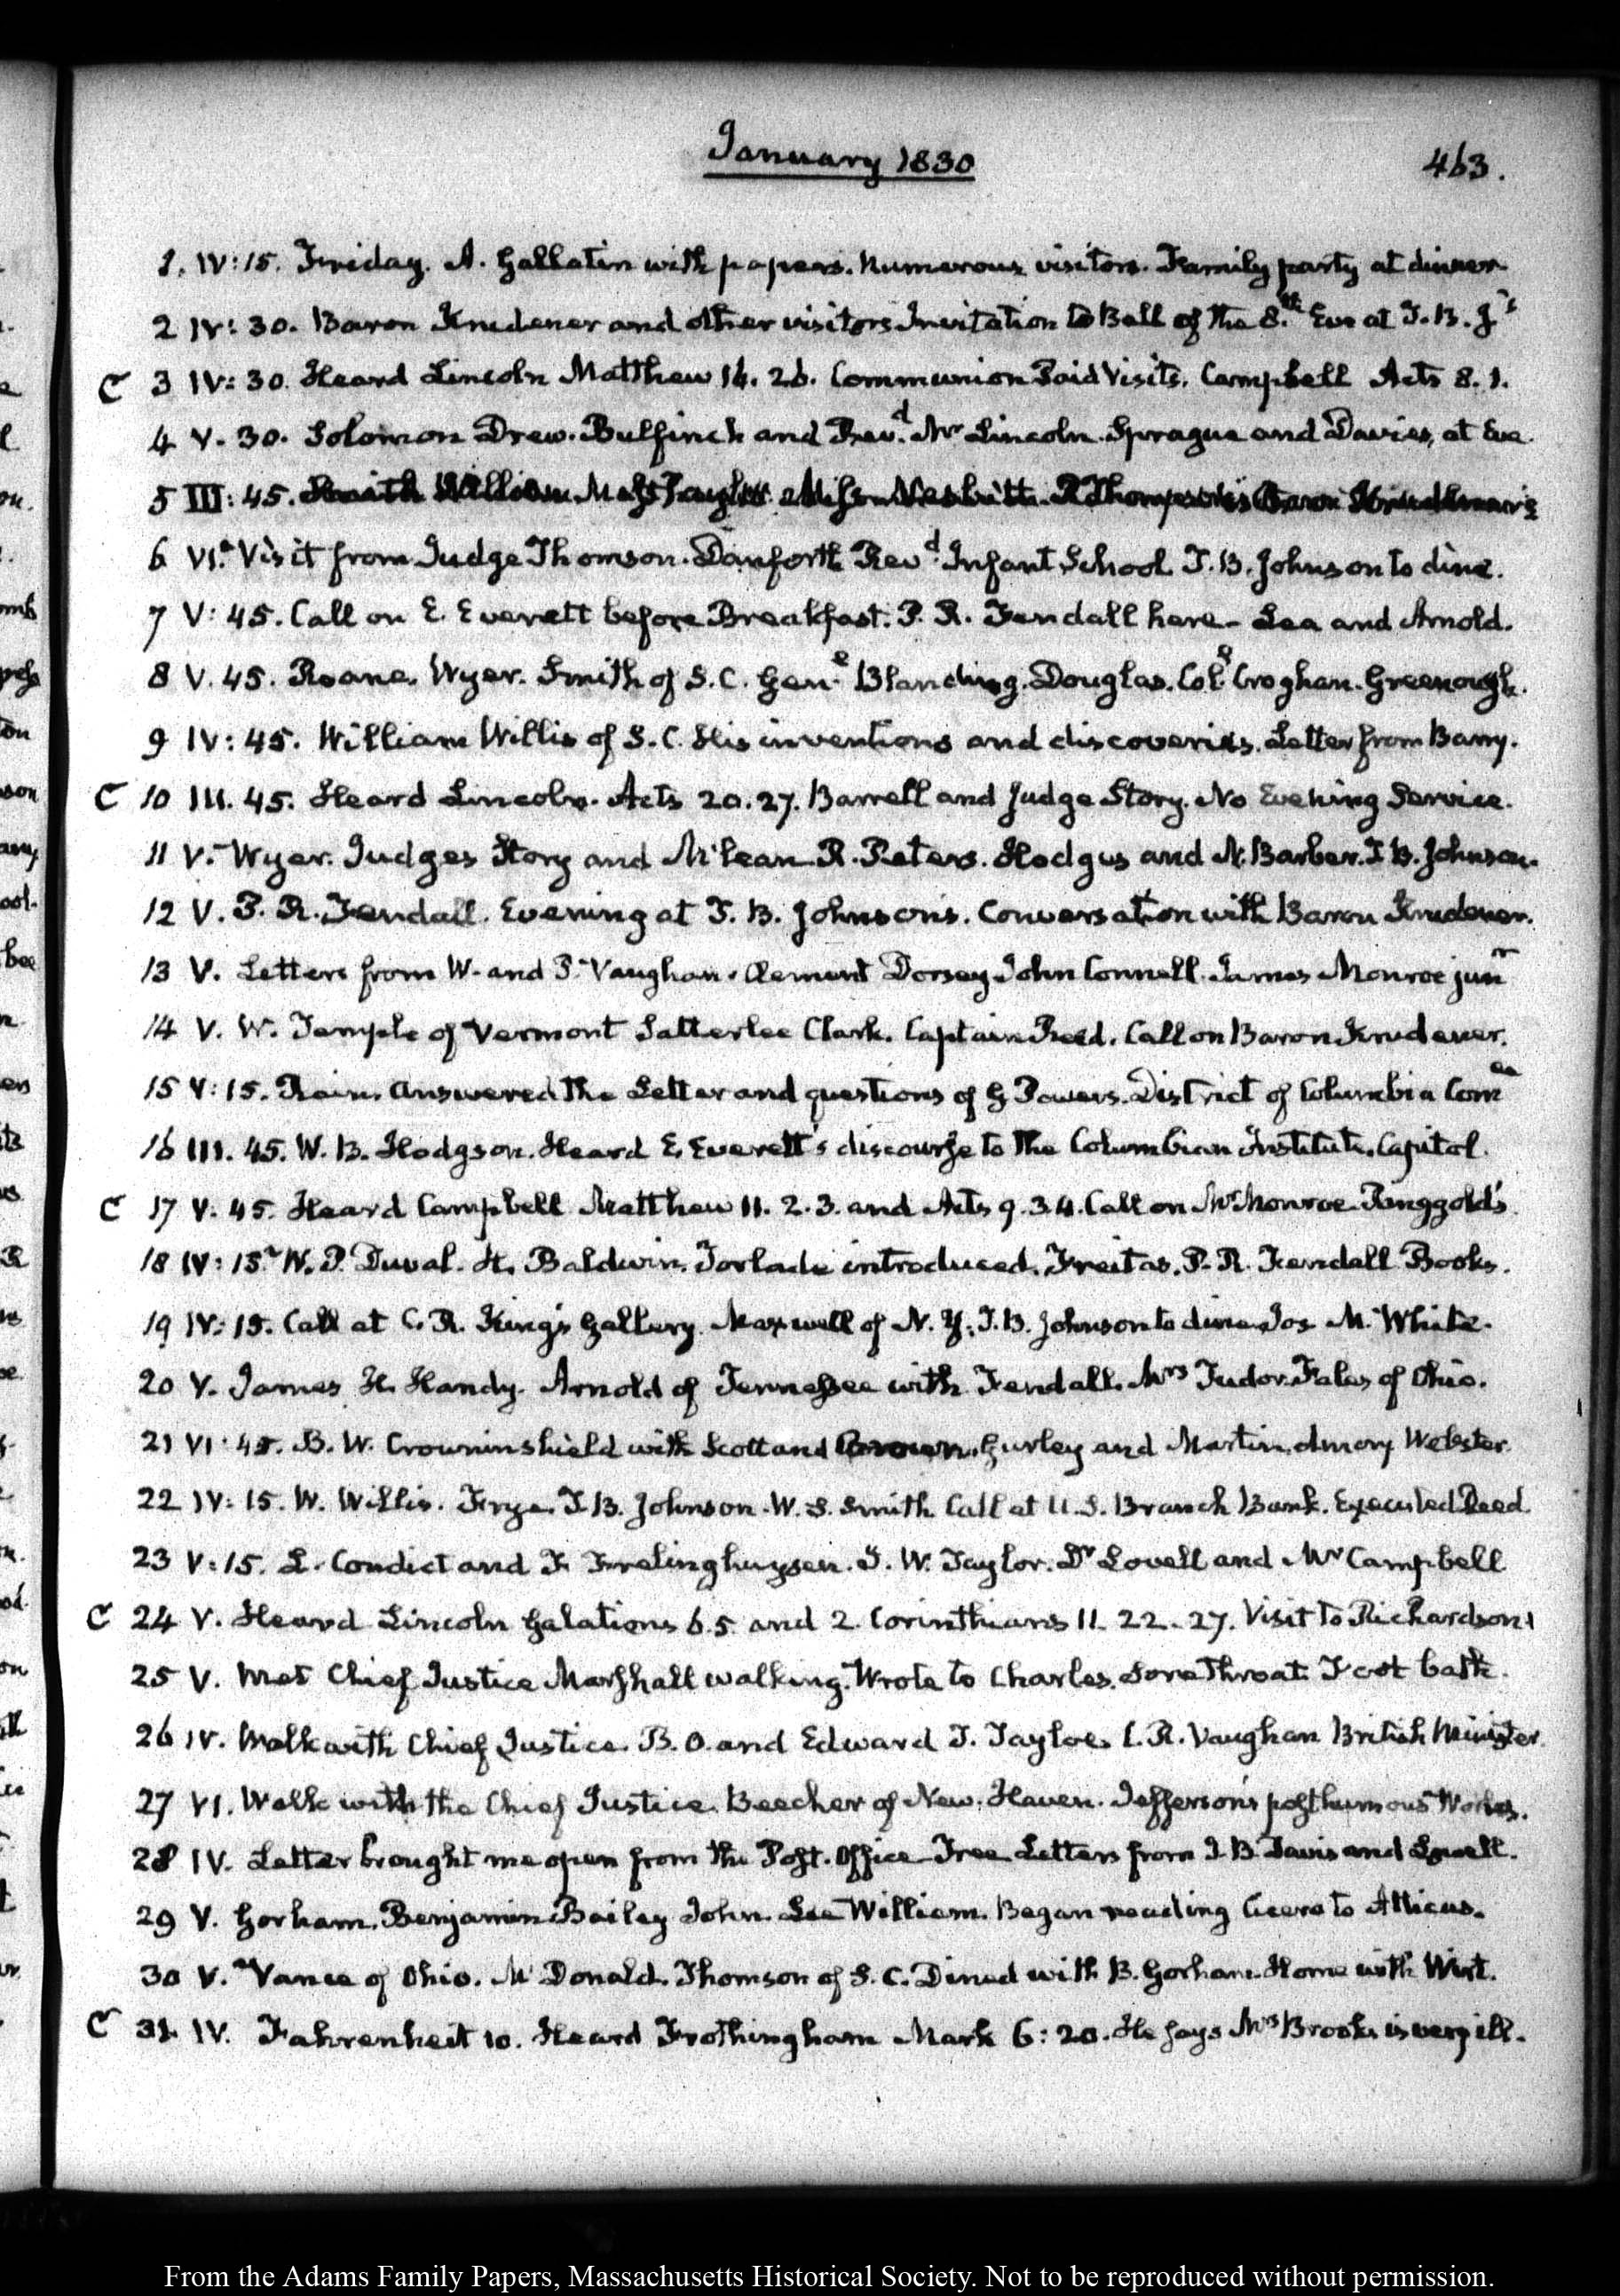 January 1830
463.
1. IV:15. Friday. A. Gallatin with papers. Numerous visitors. Family party at dinner
2 IV:30. Baron Krudener and other visitors Invitation to Ball of the 8.th Eve at T. B. J's
C 3 IV:30. Heard Lincoln Matthew 14. 26. Communion Paid Visits. Campbell Acts 8. 1.
4 V.30. Solomon Drew. Bulfinch and Rev.d Mr Lincoln. Sprague and Davies, at Eve.
5 III:45. Smith William Thompson's Baron Krudener's
6 VI. Visit from Judge Thomson. Danforth Rev.d Infant School T. B. Johnson to dine.
7 V:45. Call on E. Everett before Breakfast. P. R. Fendall here - Lea and Arnold.
8 V.45. Roane. Wyer. Smith of S.C. Genl Blanding. Douglas. Coll Croghan. Greenough.
9 IV:45. William Willis of S.C. His inventions and discoveries. Letter from Barry.
C 10 III.45. Heard Lincoln. Acts 20.27. Barrell and Judge Story. No Evening Service.
11 V. Wyer. Judges Story and McLean R. Peters. Hodges and N. Barber. T. B. Johnson.
12 V. P. R. Fendall. Evening at T. B. Johnson's. Conversation with Baron Krudener.
13 V. Letters from W. and P. Vaughan. Clement Dorsey John Connell. James Monroe junr
14 V. W. Temple of Vermont Satterlee Clark. Captain Reed. Call on Baron Krudener.
15 V:15. Rain. Answered the Letter and questions of G Powers. District of Columbia Comee
16 III.45. W. B. Hodgson. Heard E. Everett's discourse to the Columbian Institute. Capitol.
C 17 V.45. Heard Campbell Matthew 11. 2.3. and Acts 9.34. Call on Mr Monroe Ringgold's
18 IV:15. W. P. Duval. H. Baldwin. Torlade introduced. Freitas. P. R. Fendall Books.
19 IV:15. Call at C. R. King's Gallery. Maxwell of N. Y. T. B. Johnson to dine Jos M. White.
20 V. James H. Handy. Arnold of Tennessee with Fendall. Mrs Tudor. Fales of Ohio.
21 VI:45. B. W. Crowninshield with Scott and Brown. Gurley and Martin. Emory Webster.
22 IV:15. W. Willis. Frye. T. B. Johnson. W. S. Smith Call at U.S. Branch Bank. Executed Deed.
23 V:15. L. Condict and F. Frelinghuysen. J. W. Taylor. Dr Lovell and Mr Campbell
C 24 V. Heard Lincoln Galatians 6.5 and 2 Corinthians 11. 22.27. Visit to Richardson
25 V. Met Chief Justice Marshall walking. Wrote to Charles. Sore Throat. Foot bath.
26 IV. Walk with Chief Justice. B. O. and Edward T. Tayloe. C. R. Vaughan British Minister
27 VI. Walk with the Chief Justice. Beecher of New-Haven. Jefferson's posthumous Works.
28 IV. Letter brought me open from the Post-Office Free Letters from J. B. Davis and Lowell.
29 V. Gorham. Benjamin Bailey John Lee William. Began reading Cicero to Atticus.
30 V. Vance of Ohio. McDonald. Thomson of S.C. Dined with B. Gorham. Home with Wirt.
C 31 IV. Fahrenheit 10. Heard Frothingham Mark 6:20. He says Mrs Brooks is very ill.
From the Adams Family Papers, Massachusetts Historical Society. Not to be reproduced without permission.